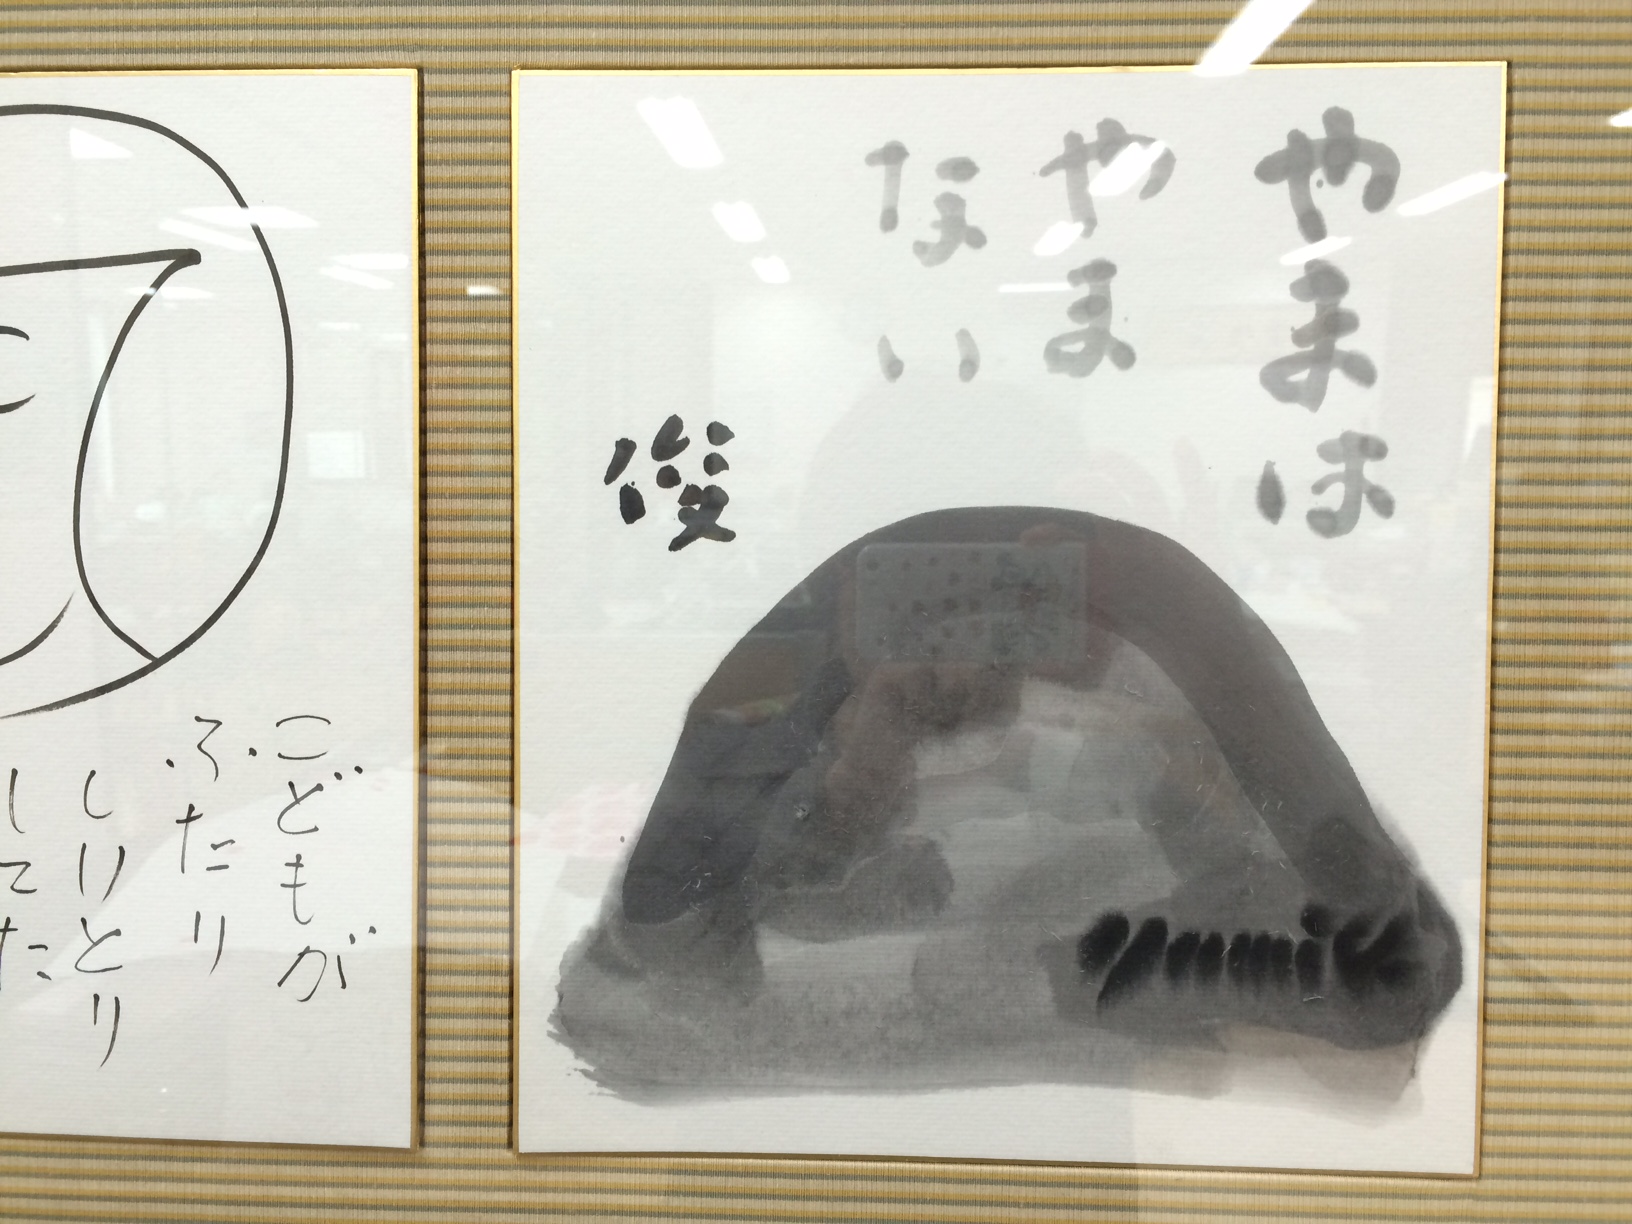 やまは
やま
ない
俊
こどもが
ふたり
しりとり